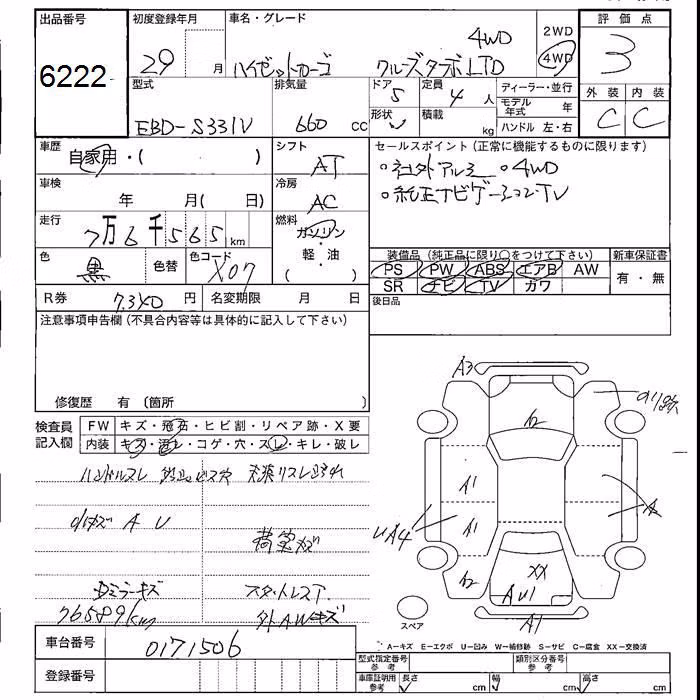 出品番号 初度登録年月 車名・グレード 評価点
6222 29 月 ハイゼットカーゴ クルーズターボLTD 4WD 2WD 4WD 3
型式 排気量 ドア 5 定員 4 人 ディーラー・並行 外装 内装
EBD-S331V 660 cc 形状 積載 kg モデル年式 年 C C
ハンドル 左・右
車歴 自家用・( ) シフト AT セールスポイント(正常に機能するものに限ります)
車検 年 月( 日) 冷房 AC ・社外アルミ ・4WD
・純正ナビゲーションTV
走行 7万6千565km 燃料 ガソリン・軽・油 ( )
色 黒 色替 色コード X07
装備品(純正品に限り○をつけて下さい) 新車保証書
PS PW ABS エアB AW 有・無
SR ナビ TV カワ
R券 7,340 円 名変期限 月 日 後日品
注意事項申告欄(不具合内容等は具体的に記入して下さい)
修復歴 有〔箇所 〕
検査員記入欄 FW キズ・飛石・ヒビ割・リペア跡・X要
内装 キズ・汚レ・コゲ・穴・スレ・キレ・破レ
ハンドルスレ ビス穴
A U 荷室キズ
ミラーキズ スタットレスT
76589km 外AWキズ
A3
A2
A1
A1
UA4 A
A2 XX
AU1
A1
スペア
A-キズ E-エクボ U-凹み W-補修跡 S-サビ C-腐食 XX-交換済
車台番号 0171506
型式指定番号 参考 類別区分番号 参考
登録番号 車庫証明用 参考 長さ cm 幅 cm 高さ cm